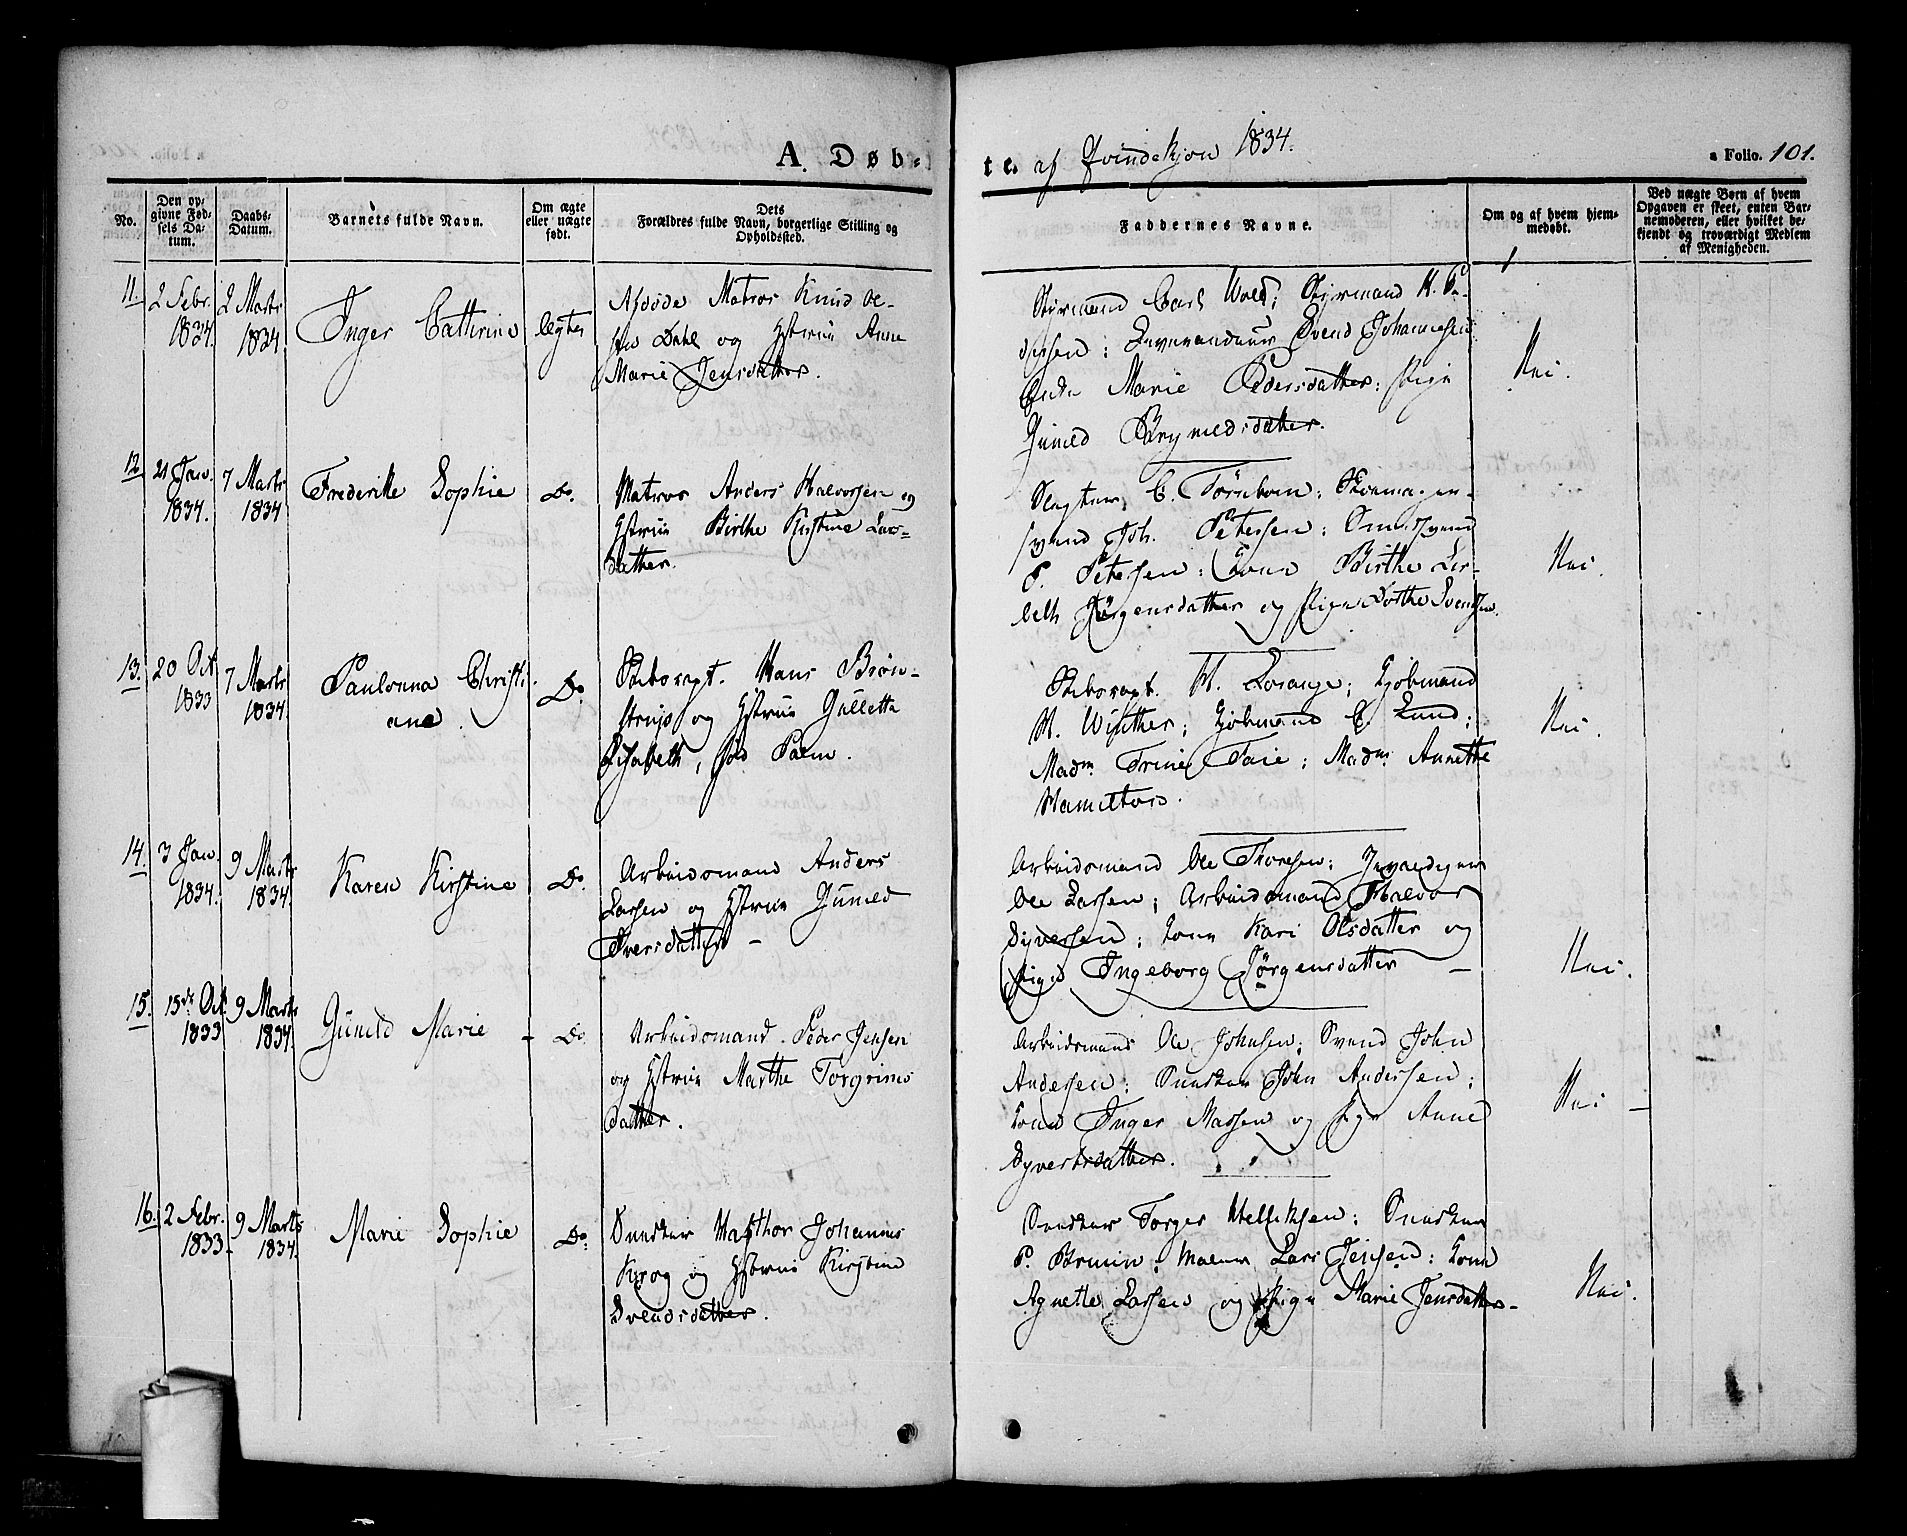 A. Døb-
te. af Qvindekjøn 1834.
a Folio. 101.
No.
Den op-
givne Fød-
sels Da-
tum.
Daabs-
Datum.
Barnets fulde Navn.
Om ægte
eller uægte
født.
Dets
Forældres fulde Navn, borgerlige Stilling og
Opholdssted.
Faddernes Navne.
Om og af hvem hjem-
medøbt.
Ved uægte Børn af hvem
Opgaven er skeet, enten Bar-
nemoderen, eller hvilket be-
kjendt og troværdigt Medlem
af Menigheden.
11. 2 Febr. 1834. 2 Marts 1834 Inger Cathrine Ægte
Afdøde Matros Knud Ol-
sen Dahl og Hstrue Anne
Marie Jensdatter.
Styrmand Carl Wold; Styrmand H. Pe-
dersen; Svend Johannesen
Marie Pedersdatter; Pige
Gunild Brynildsdatter.
Nei.
12 21 Jan. 1834. 7 Marts 1834 Frederikke Sophie Do.
Matros Anders Halvorsen og
Hstrue Birthe Kirstine Lars-
datter.
Slagter C. Törnbom; Skomager-
svend Joh. Petersen; Smedsvend
P. Petersen; Cone Birthe Lis-
beth Jörgensdatter og Pige Dorthe Svendsen.
Nei.
13. 20 Oct 1833 7 Marts 1834. Paulonna Christi-
ane.
Do.
Skibscapt. Hans Brøn-
strup og Hstrue Gullette
Elisabeth, fød Palm.
Skibscapt. H. Lorange; Kjøbmand
H. Winther; Kjøbmand C. Lund;
Madm. Trine Faie; Madm. Annette
Hamilton.
Nei.
14. 3 Jan. 1834. 9 Marts 1834. Karen Kirstine Do.
Arbeidsmand Anders
Larsen og Hstrue Gunild
Iversdatter –
Arbeidsmand Ole Thoresen;
Ole Larsen; Arbeidsmand Halvor
Syversen; Kone Kari Olsdatter og
Pige Ingeborg Jörgensdatter –
Nei.
15. 15de Oct 1833 9 Marts 1834. Gunild Marie – Do.
Arbeidsmand Peder Jensen
og Hstrue Marthe Torgrims
datter.
Arbeidsmand Ole Johnsen; Svend John
Andersen; Snedker John Andersen;
Kone Inger Madsen og Pige Anne
Syvertsdatter.
Nei –
16. 2 Febr. 1833. 9 Marts 1834. Marie Sophie Do.
Snedker Halthor Johannes
Krog og Hstrue Kirstine
Svendsdatter.
Snedker Torger Kittelsen; Snedker
P. Bruun; Maler Lars Jensen; Kone
Agnette Larsen og Pige Marie Jensdatter –
Nei.